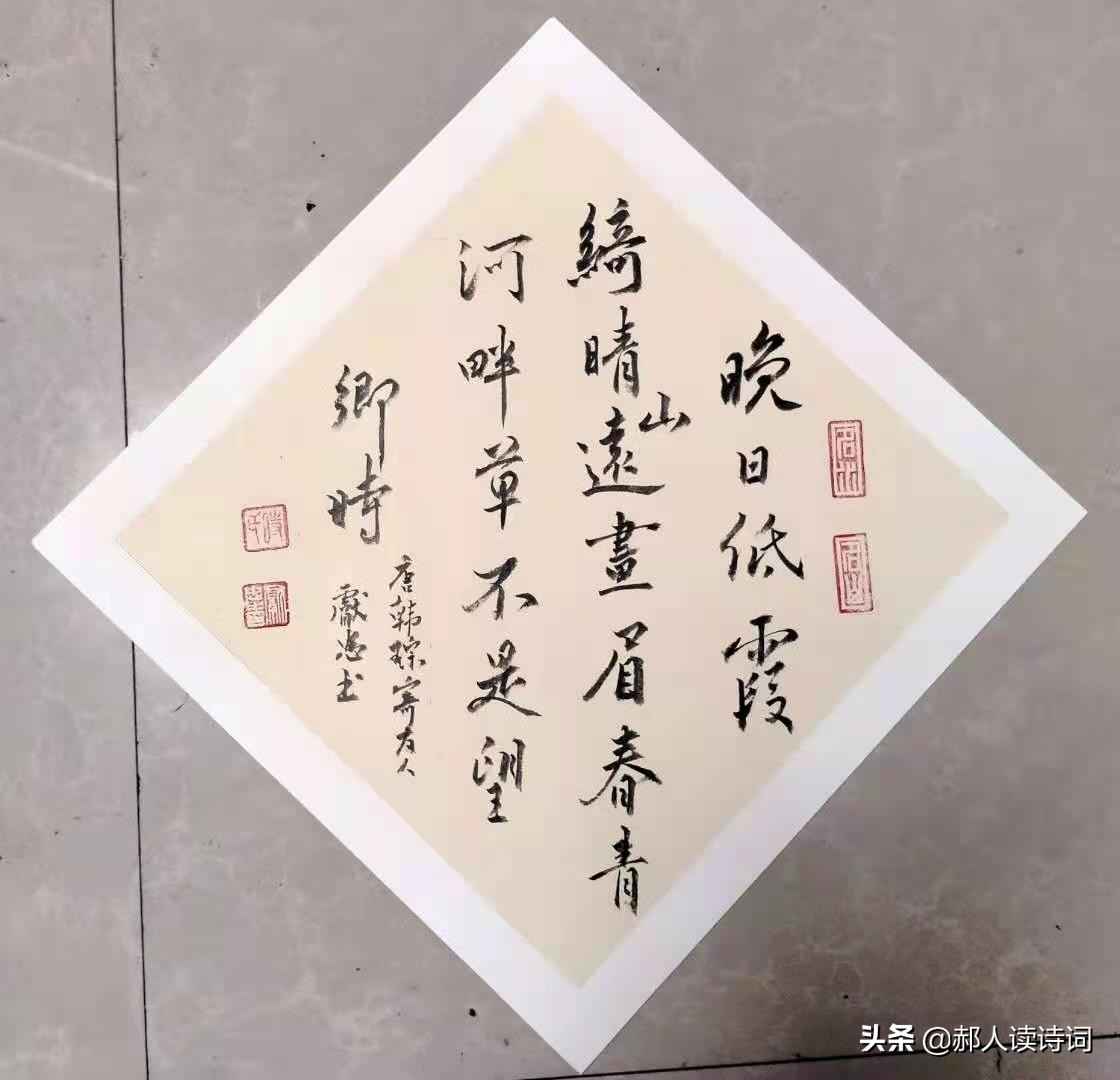 晚日低霞
綺晴山遠畫眉春青
河畔草不是望
鄉時
唐韩琮寄友人
獻书
头条 @郝人读诗词